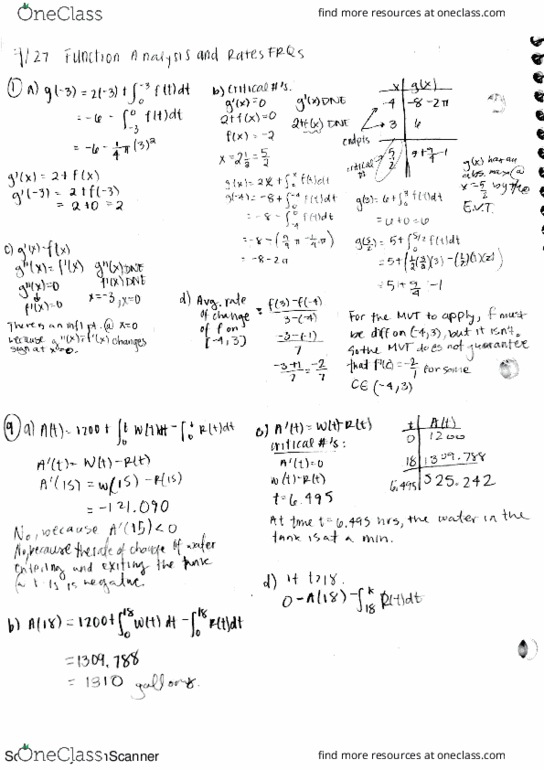 OneClass
find more resources at oneclass.com
4/27 Function Analysis and Rates FRQs
① a) g(-3) = 2(-3) + ∫₀⁻³ f(t)dt
= -6 - ∫₋₃⁰ f(t)dt
= -6 - 1/4 π(3)²
g'(x) = 2 + f(x)
g'(-3) = 2 + f(-3)
= 2 + 0 = 2
b) Critical #'s.
g'(x) = 0 g'(x) DNE
2 + f(x) = 0 2 + f(x) DNE
f(x) = -2
x = 2 1/2 = 5/2
g(x) = 2x + ∫₀ˣ f(t)dt
g(-4) = -8 + ∫₀⁻⁴ f(t)dt
= -8 - ∫₋₄⁰ f(t)dt
= -8 - (9/4 π - 1/4 π)
= -8 - 2π
x g(x)
-4 -8-2π
3 6
5/2 5 + 9/4 - 1
endpts
critical pt
g(3) = 6 + ∫₀³ f(t)dt
= 6 + 0 = 6
g(5/2) = 5 + ∫₀^5/2 f(t)dt
= 5 + (1/2)(3/2)(3) - (1/2)(1)(2)
= 5 + 9/4 - 1
g(x) has an
abs. max @
x = 5/2 by the
E.V.T.
c) g'(x) = f(x)
g''(x) = f'(x) g''(x) DNE
g''(x) = 0 f'(x) DNE
f'(x) = 0 x = -3, x = 0
There is an infl pt. @ x = 0
because g''(x) = f'(x) changes
sign at x = 0.
d) Avg. rate
of change
of f on
[-4, 3]
= f(3) - f(-4) / 3 - (-4)
-3 - (-1) / 7
-3 + 1 / 7 = -2/7
For the MVT to apply, f must
be diff on (-4, 3), but it isn't.
So the MVT does not guarantee
that f'(c) = -2/7 for some
C ∈ (-4, 3)
⑨ a) A(t) = 1200 + ∫₀ᵗ W(t)dt - ∫₀ᵗ R(t)dt
A'(t) = W(t) - R(t)
A'(15) = W(15) - R(15)
= -121.090
No, because A'(15) < 0
No, because the rate of change of water
entering and exiting the tank
@ t = 15 is negative.
b) A(18) = 1200 + ∫₀¹⁸ W(t)dt - ∫₀¹⁸ R(t)dt
= 1309.788
= 1310 gallons.
c) A'(t) = W(t) - R(t)
critical #'s:
A'(t) = 0
W(t) = R(t)
t = 6.495
t A(t)
0 1200
18 1309.788
6.495 525.242
At time t = 6.495 hrs, the water in the
tank is at a min.
d) If t > 18.
0 = A(18) - ∫₁₈ᵏ R(t)dt
OneClass
Scanner
find more resources at oneclass.com